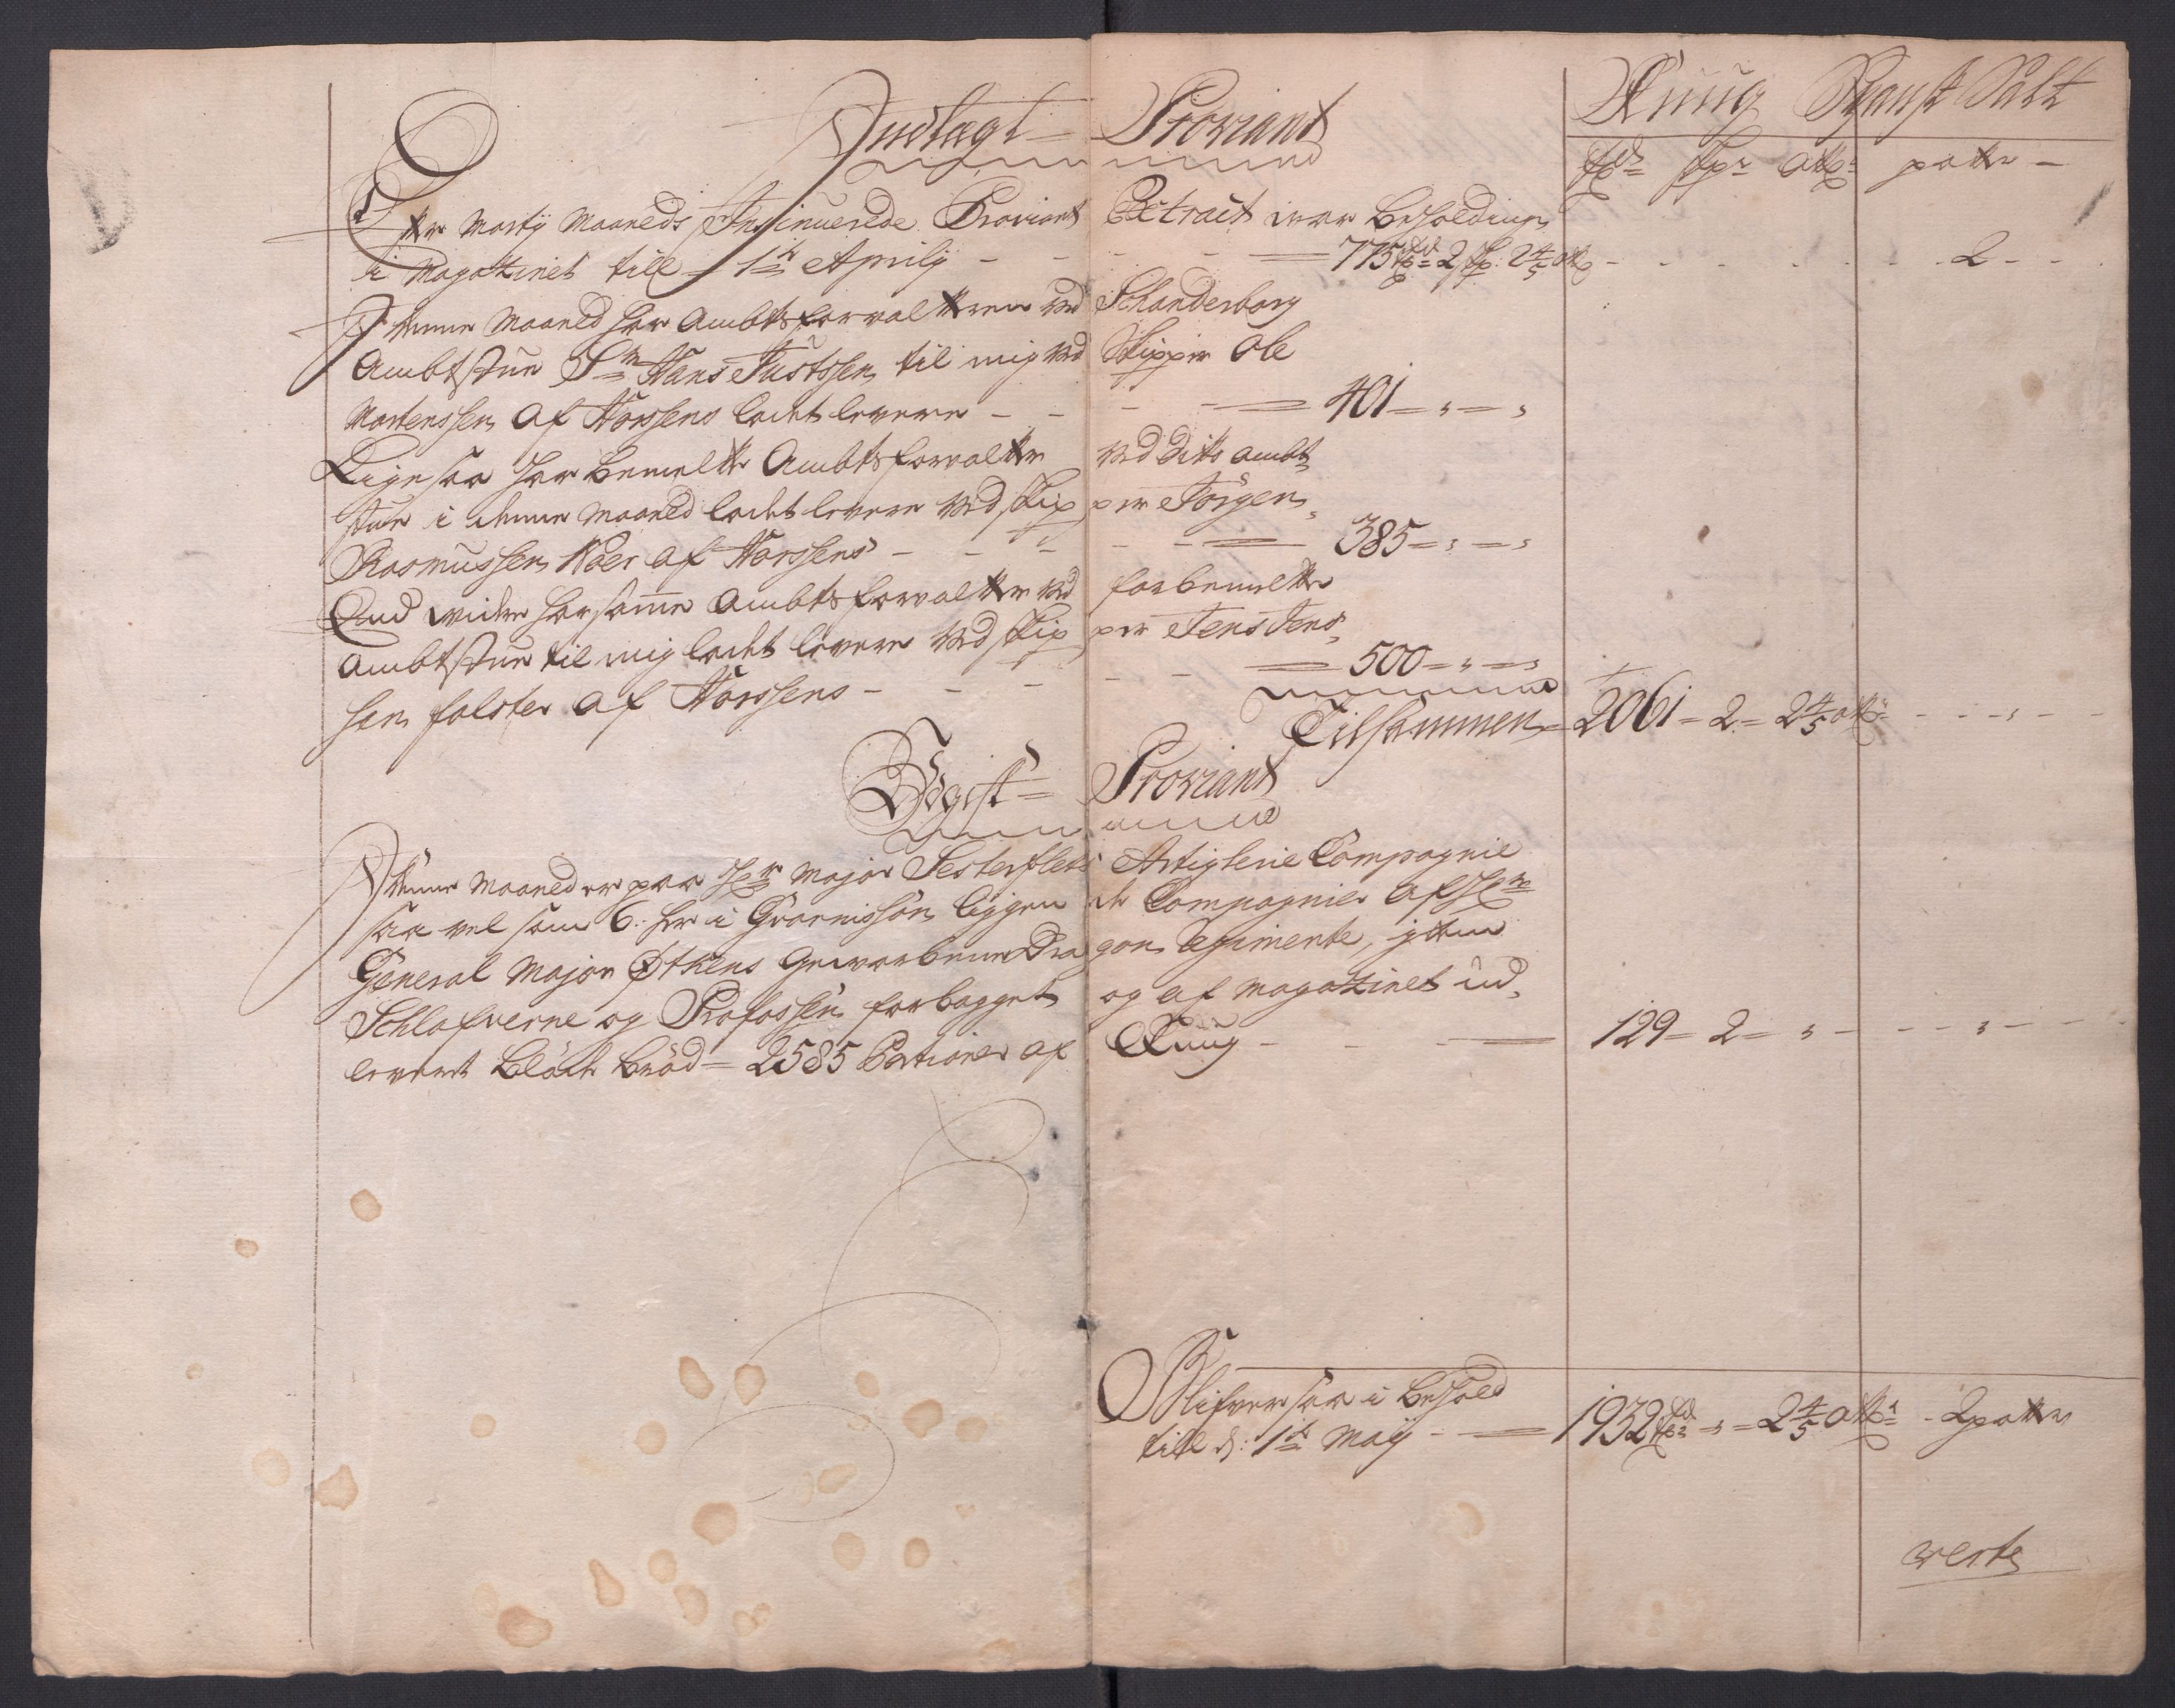 Indtægt Proviant
Ruug Spansk Salt
Tdr Skpr Otkr potter
Efter Martÿ Maaneds Insinuerede Proviant Extract war beholdingen
i Magatzinet till 1ste Aprilÿ - - - - 775 Tdr 2 Skp: 2 4/5 otk - - - - - 2 - -
J denne Maaned har Ambtsforvalteren ved Schanderborg
Ambtstue Sr Hans Justsen til mig ved Skipper Ole
Mortenssen af Horssens ladet levere - - - - 401 = " = "
Ligesaa har bemelte Ambtsforvalter ved dito Ambt
stue i denne Maaned ladet levere ved Skipper Jörgen
Rasmussen Koer af Horssens - - - - - 385 = " = "
End widre har samme Ambtsforvalter ved forbemelte
Ambtstue til mig ladet levere ved Skipper Jens Jens
sen falster af Horssens - - - - - 500 = " = "
Tilsammen = 2061 = 2 = 2 4/5 otk - - - " - -
Udgift Proviant
J denne Maaned er paa Hr Major Artiglerie Compagnie
saa vel som 6. her i Guarnisson liggende Compagnier af Hr
General Major Øtkens Geworbene Dragon Regimente, jtem
Schlafverne og Profossen forbagget og af Magatzinet ud
leveret blöde bröd = 2585 Portioner af Ruug - - - 129 = 2 = " - - - " - - -
Blifver saa i behold
till d: 1ste Maÿ - - 1932 Tdr = " = 2 4/5 Otkr - 2 potter
verte